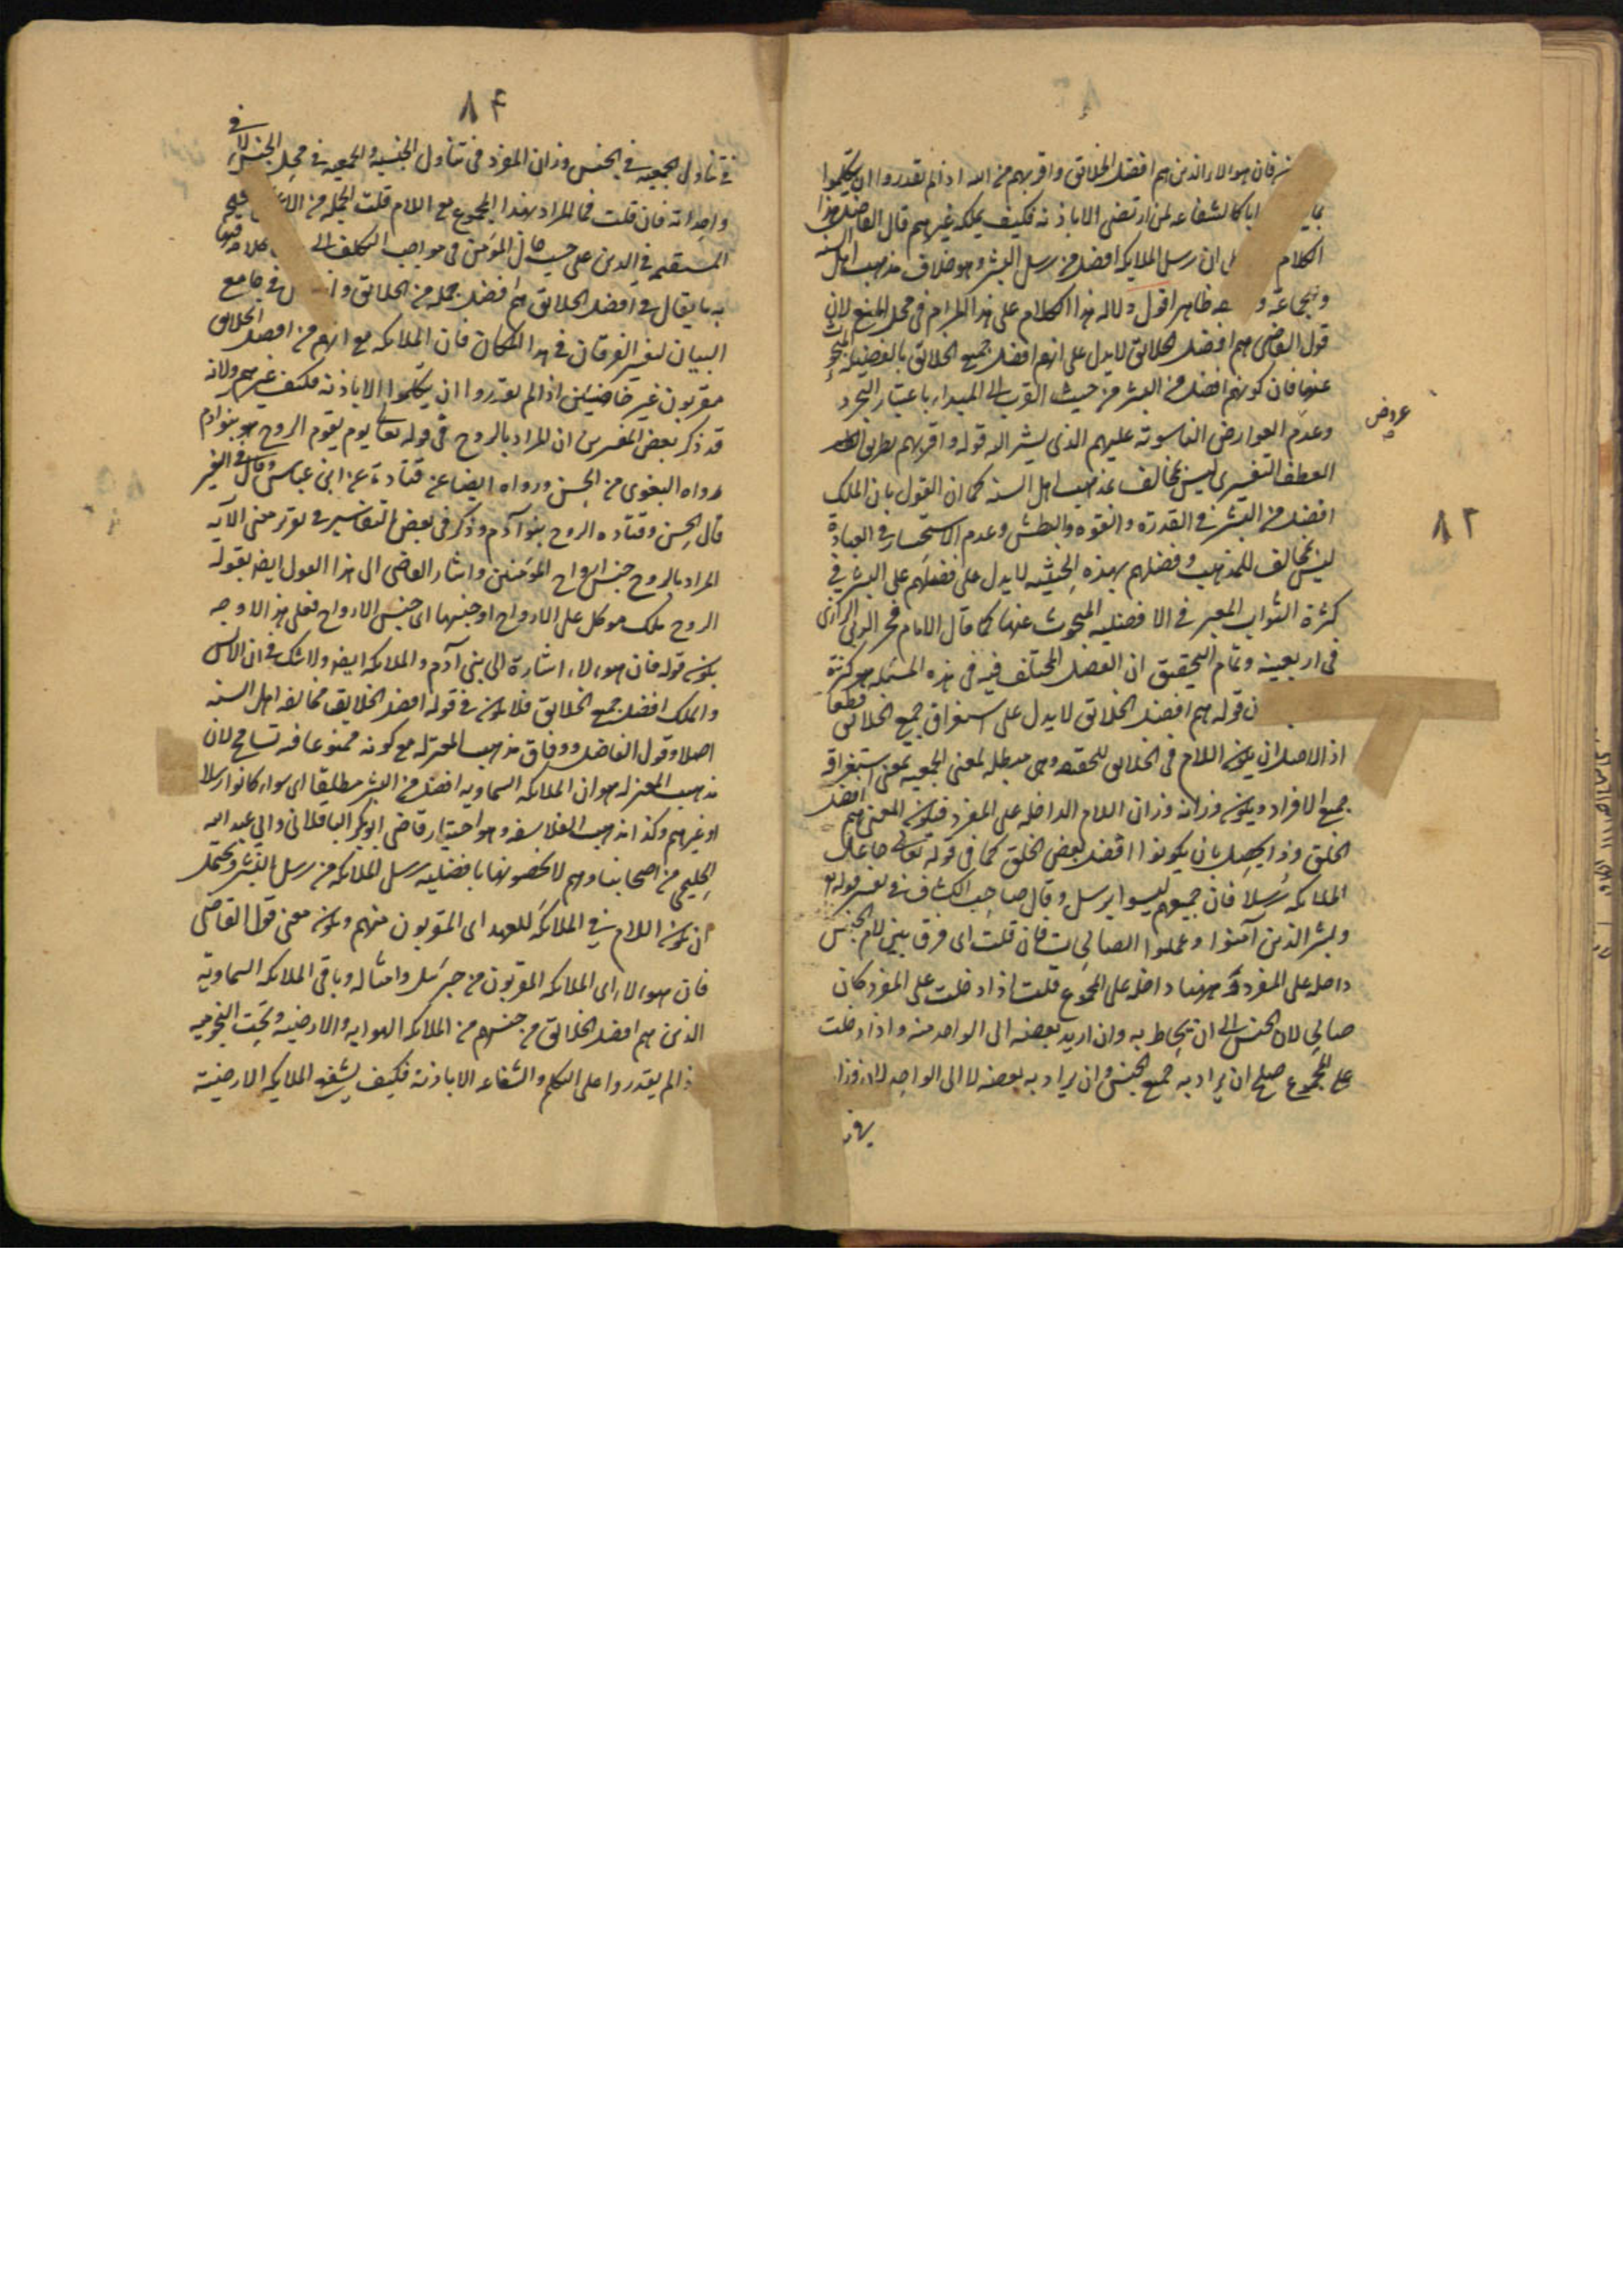 فان هؤلاء الذين هم افضل الخلائق واقربهم من الله اذا لم يقدروا ان يتكلموا
كالشفاعه لمن ارتضى الا باذنه فكيف يملكه غيرهم قال الفاضل هذا
الكلام ان رسل الملايكه افضل من رسل البشر وهو خلاف مذهب اهل السنه
والجماعة ظاهر اقول دلاله هذا الكلام على هذا المرام فى محل المنع لان
قول القاضى هم افضل الخلائق لا يدل على انهم افضل جميع الخلائق بالفضيله المبحوث
عنها فان كونهم افضل من البشر من حيث القرب الى المبداء باعتبار التجرد
وعدم العوارض الناسوته عليهم الذى يشير اليه قوله واقربهم بطريق
العطف التفسيرى ليس بمخالف لمذهب اهل السنه كما ان القول بان الملك
افضل من البشر فى القدرة والقوه والبطش وعدم الاستحسار فى العبادة
ليس بمخالف للمذهب وفضلهم بهذه الحيثيه لا يدل على فضلهم على البشر فى
كثرة الثواب المعبر فى الافضليه المبحوث عنها كما قال الامام فخر الدين الرازى
فى اربعينه وتمام التحقيق ان الفضل المختلف فيه فى هذه المسئله هو كثرة
قوله هم افضل الخلائق لا يدل على استغراق جميع الخلائق قطعا
اذ الاصل ان يكون اللام فى الخلائق للحقيقه وهى مبطله لمعنى الجمعيه بمعنى استغراقه
جميع الافراد ويكون وزانه وزان اللام الداخله على المفرد فيكون المعنى هم افضل
الخلق وذا يحصل بان يكونوا افضل بعض الخلق كما فى قوله تعالى جاعل
الملائكه رسلا فان جميعهم ليسوا برسل وقال صاحب الكشاف فى تفسير قوله تع
وبشر الذين آمنوا وعملوا الصالحات فان قلت اى فرق بين لام الجنس
داخله على المفرد و بينها داخله على المجموع قلت اذا دخلت على المفرد كان
صالحا لان الجنس الى ان يحاط به وان اريد بعضه الى الواحد منه واذا دخلت
على المجموع صلح ان يراد به جميع الجنس وان يراد به بعضه لا الى الواحد لان وزانه
عروض
٨٣
٨٤
فى تناول الجمعيه فى الجنس وزان المفرد فى تناول الجنسيه والجمعيه فى جمل الجنس لا فى
وحداته فان قلت فما المراد بهذا المجموع مع اللام قلت الجمله من الاعمال
المستقيمه فى الدين على حسب حال المؤمن فى مواجب التكلف
يقال فى افضل الخلائق هم افضل جمله من الخلائق فى جامع
البيان لفي الفرقان فى هذا المكان فان الملائكه مع انهم من افضل الخلائق
مقربون غير خاضعين اذا لم يقدروا ان يتكلموا الا باذنه فكيف غيرهم ولانه
قد ذكر بعض المفسرين ان المراد بالروح فى قوله تعالى يوم يقوم الروح هو بنو ادم
رواه البغوى من الحسن ورواه ايضا عن قتادة عن ابن عباس
قال الحسن وقتاده الروح بنو آدم وذكر فى بعض التفاسير فى تقرير معنى الآيه
المراد بالروح جنس ارواح المؤمنين واشار القاضى الى هذا القول ايضا بقوله
الروح ملك موكل على الارواح او جنسها اى جنس الارواح فعلى هذا الاوجه
يكون قوله فان هؤلاء اشارة الى بنى آدم والملائكه ايضا ولا شك فى ان الانس
والملك افضل جميع الخلائق فلا يكون فى قوله افضل الخلايق مخالفه اهل السنه
اصلا وقول الفاضل ووفاق مذهب المعتزله مع كونه ممنوعا فيه تسامح لان
مذهب المعتزله هو ان الملائكه السماويه افضل من البشر مطلقا اى سواء كانوا رسلا
او غيرهم وكذا مذهب الفلاسفه وهو اختيار قاضى ابو بكر الباقلانى وابى عبد الله
الحليمى من اصحابنا وهم لا يخصونها بافضليه رسل الملائكه من رسل البشر ويحتمل
ان يكون اللام فى الملائكه للعهد اى المقربون منهم ويكون معنى قول القاضى
فان هؤلاء اى الملائكه المقربون من جبرئيل وامثاله وباقى الملائكه السماوية
الذين هم افضل الخلائق من جنسهم من الملائكه الهوايه والارضيه وتحت النجوميه
اذا لم يقدروا على التكلم والشفاعه الا باذنه فكيف يشفع الملايكه الارضية